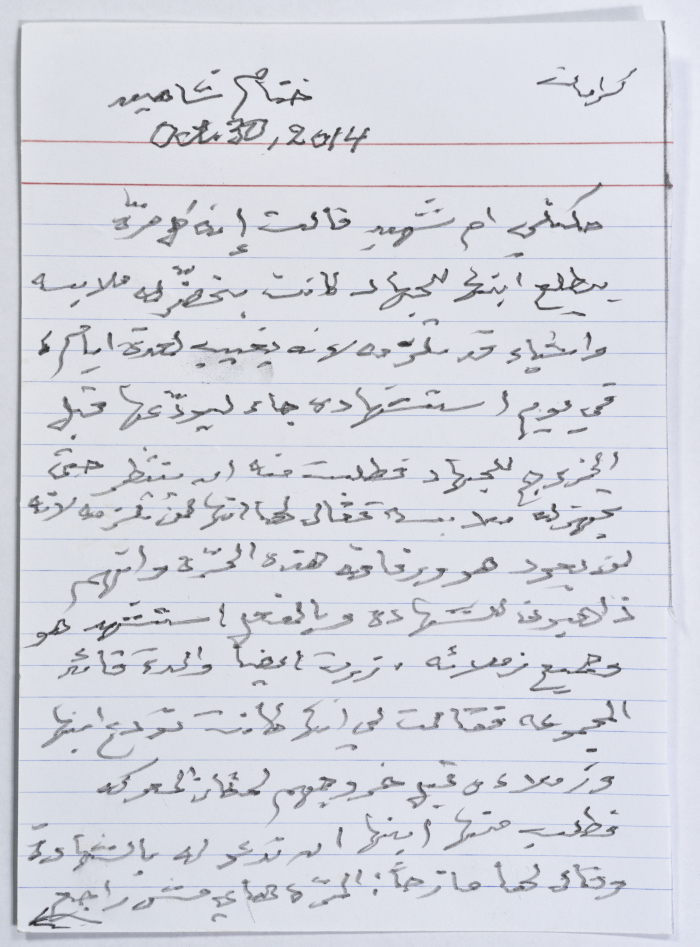 كرامات
ختام شاهين
Oct. 30, 2014
حكتلي ام شهيد قالت إنه كل مرّة
يطلع ابنها للجهاد كانت بتحضّر له ملابسه
واشياء قد تلزمه لانه يغيب لعدة ايام،
في يوم استشهاده جاء ليودّعها قبل
الخروج للجهاد فطلبت منه ان ينتظر حتى
تجهز له ملابسه فقال لها انها لن تلزمه لانه
لن يعود هو ورفاقه هذه المرّة وانهم
ذاهبون للشهادة وبالفعل استشهد هو
وجميع زملائه. زرت ايضاً والدة قائد
المجموعه فقالت لي انها كانت تودع ابنها
وزملاءه قبل خروجهم لمكان المعركه
فطلب منها ابنها ان تدعو له بالشهادة
وقال لها مازحاً: المرّة هاي مش راجع